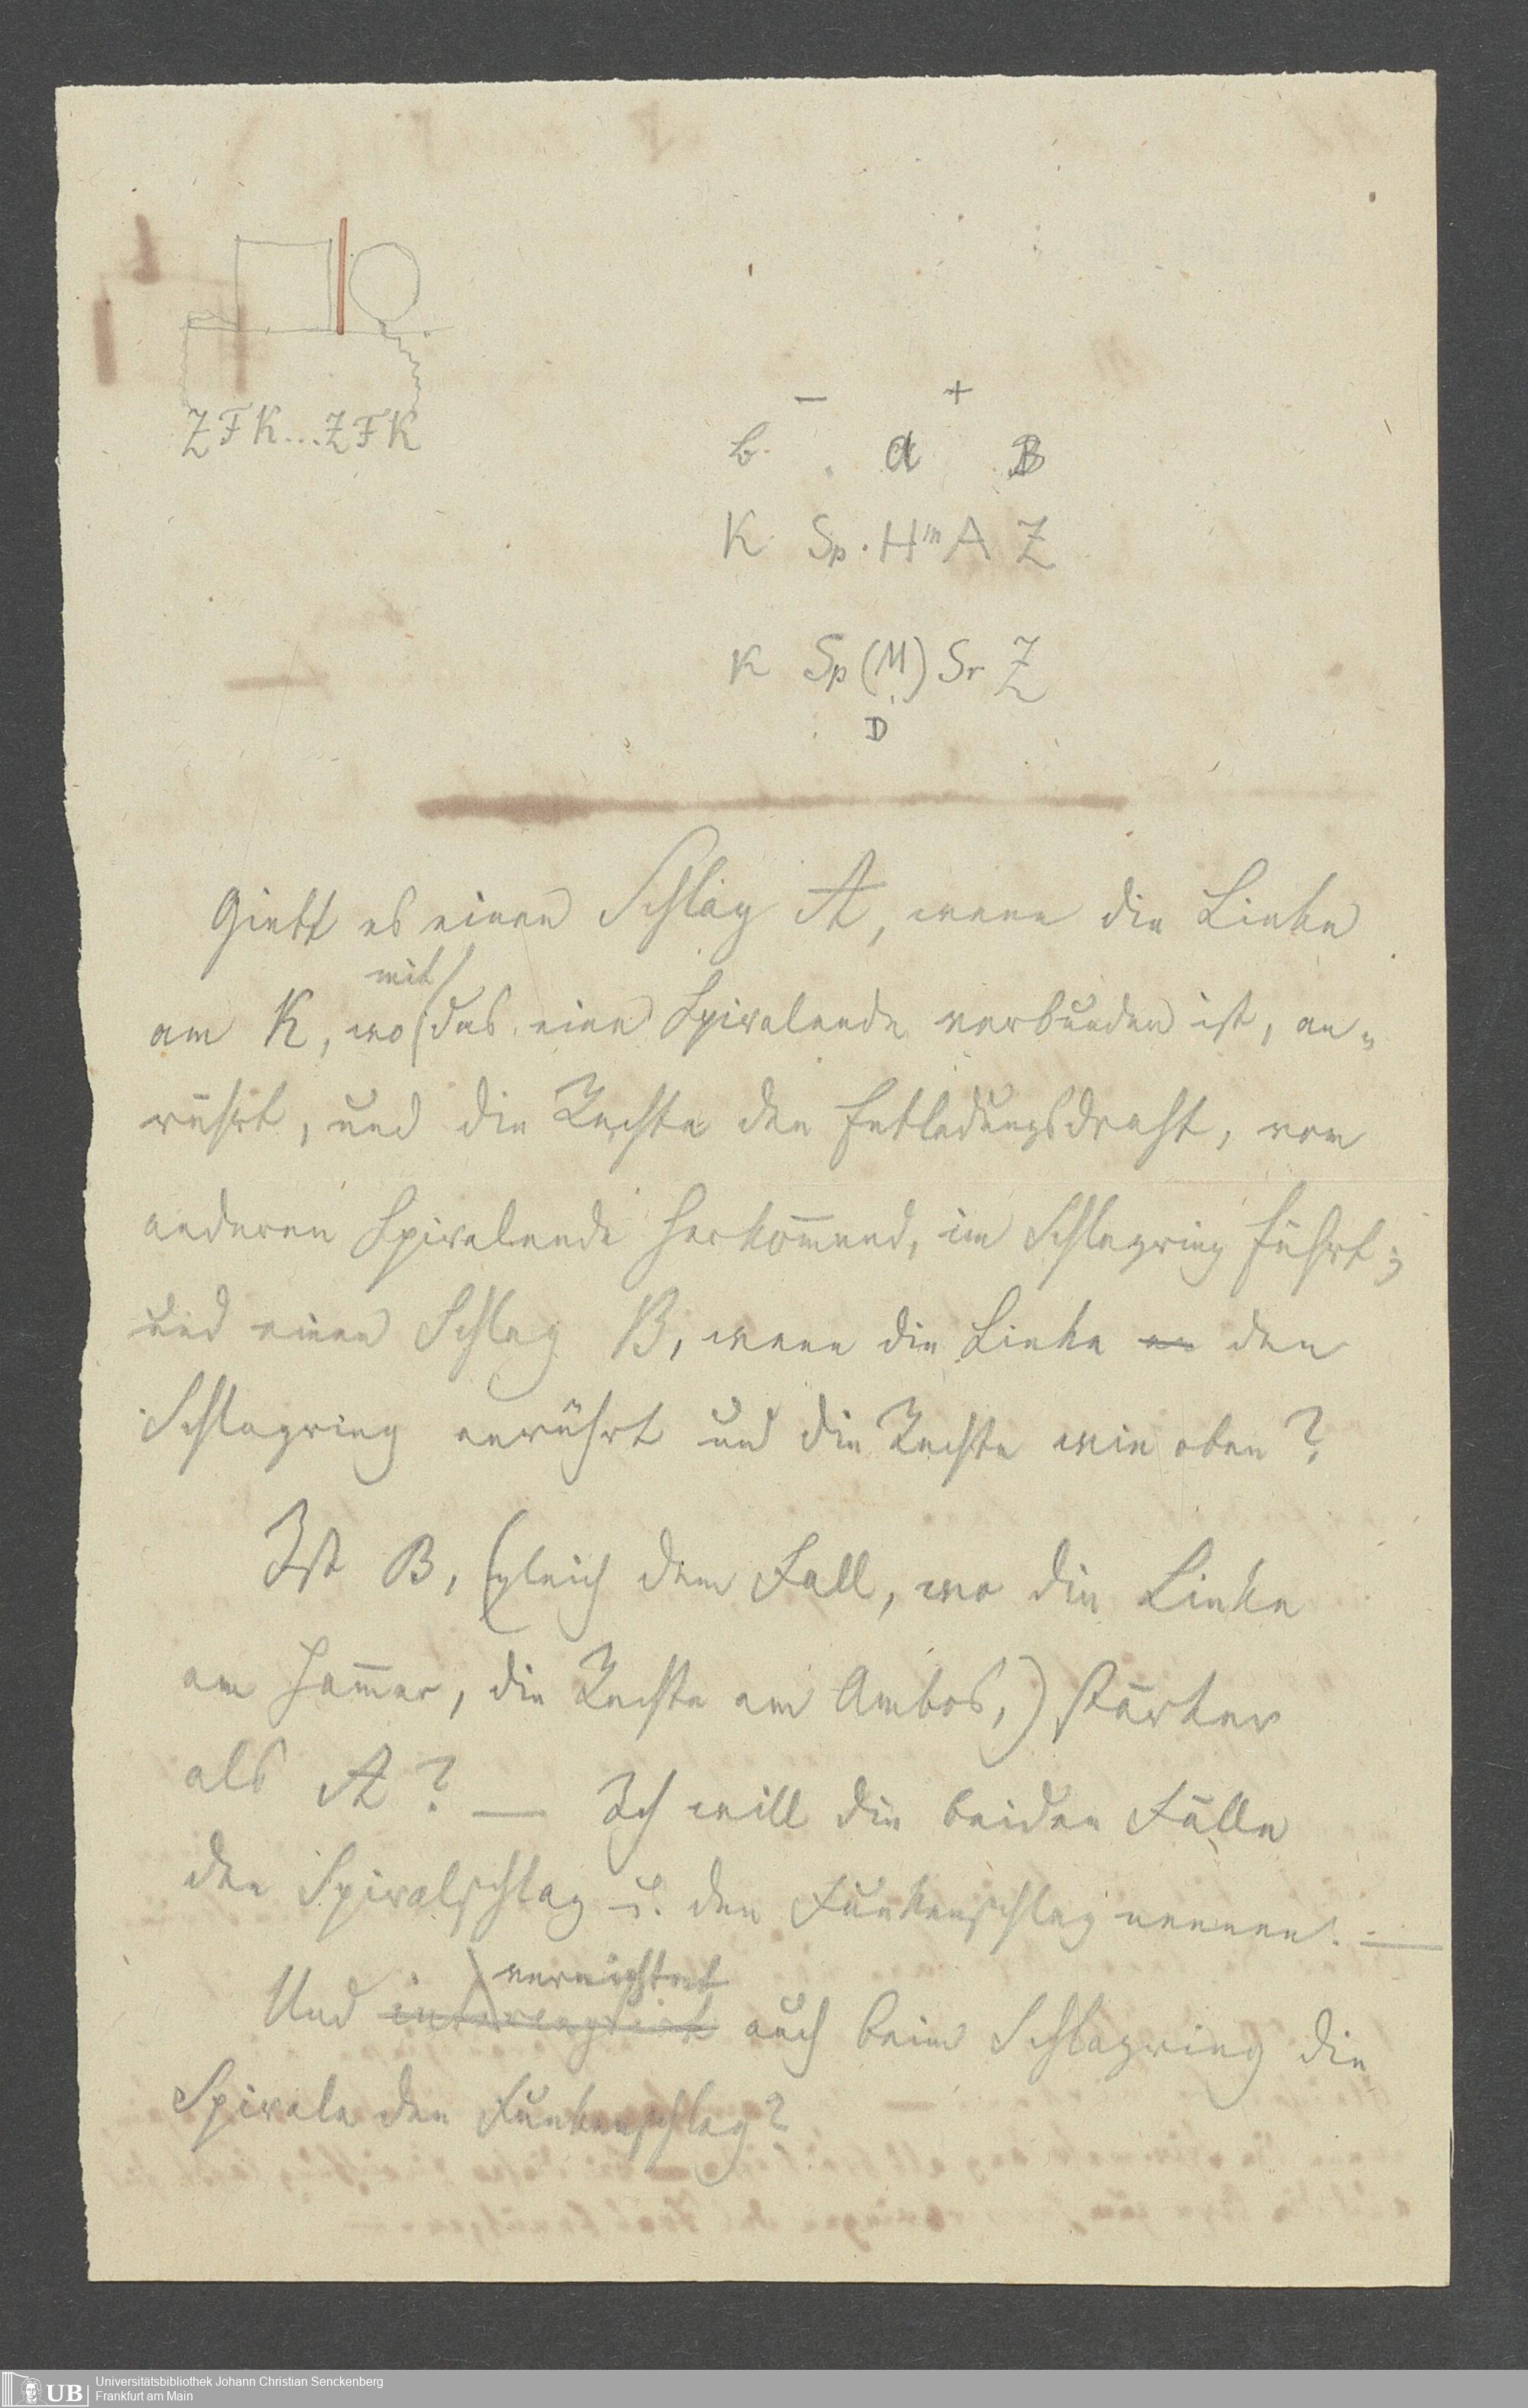 ZFK...ZFK
− +
b. a B
K Sp. Hm A Z
K Sp (M) Sr Z
D
Giebt es einen Schlag A, wenn die Linke
mit
am K, wo das eine Spiralende verbunden ist, an-
rührt, und die Rechte den Entladungsdraht, vom
anderen Spiralende herkom̅end, im Schlagring führt;
und einen Schlag B, wenn die Linke an den
Schlagring anrührt und die Rechte wie oben?
Ist B, (gleich dem Fall, wo die Linke
am Ham̅er, die Rechte am Ambos,) stärker
als A? — Ich will die beiden Fälle
den Spiralschlag u. den Funkenschlag nennen. —
vernichtet
Und auch beim Schlagring die
Spirale den Funkenschlag?
UB
Universitätsbibliothek Johann Christian Senckenberg
Frankfurt am Main